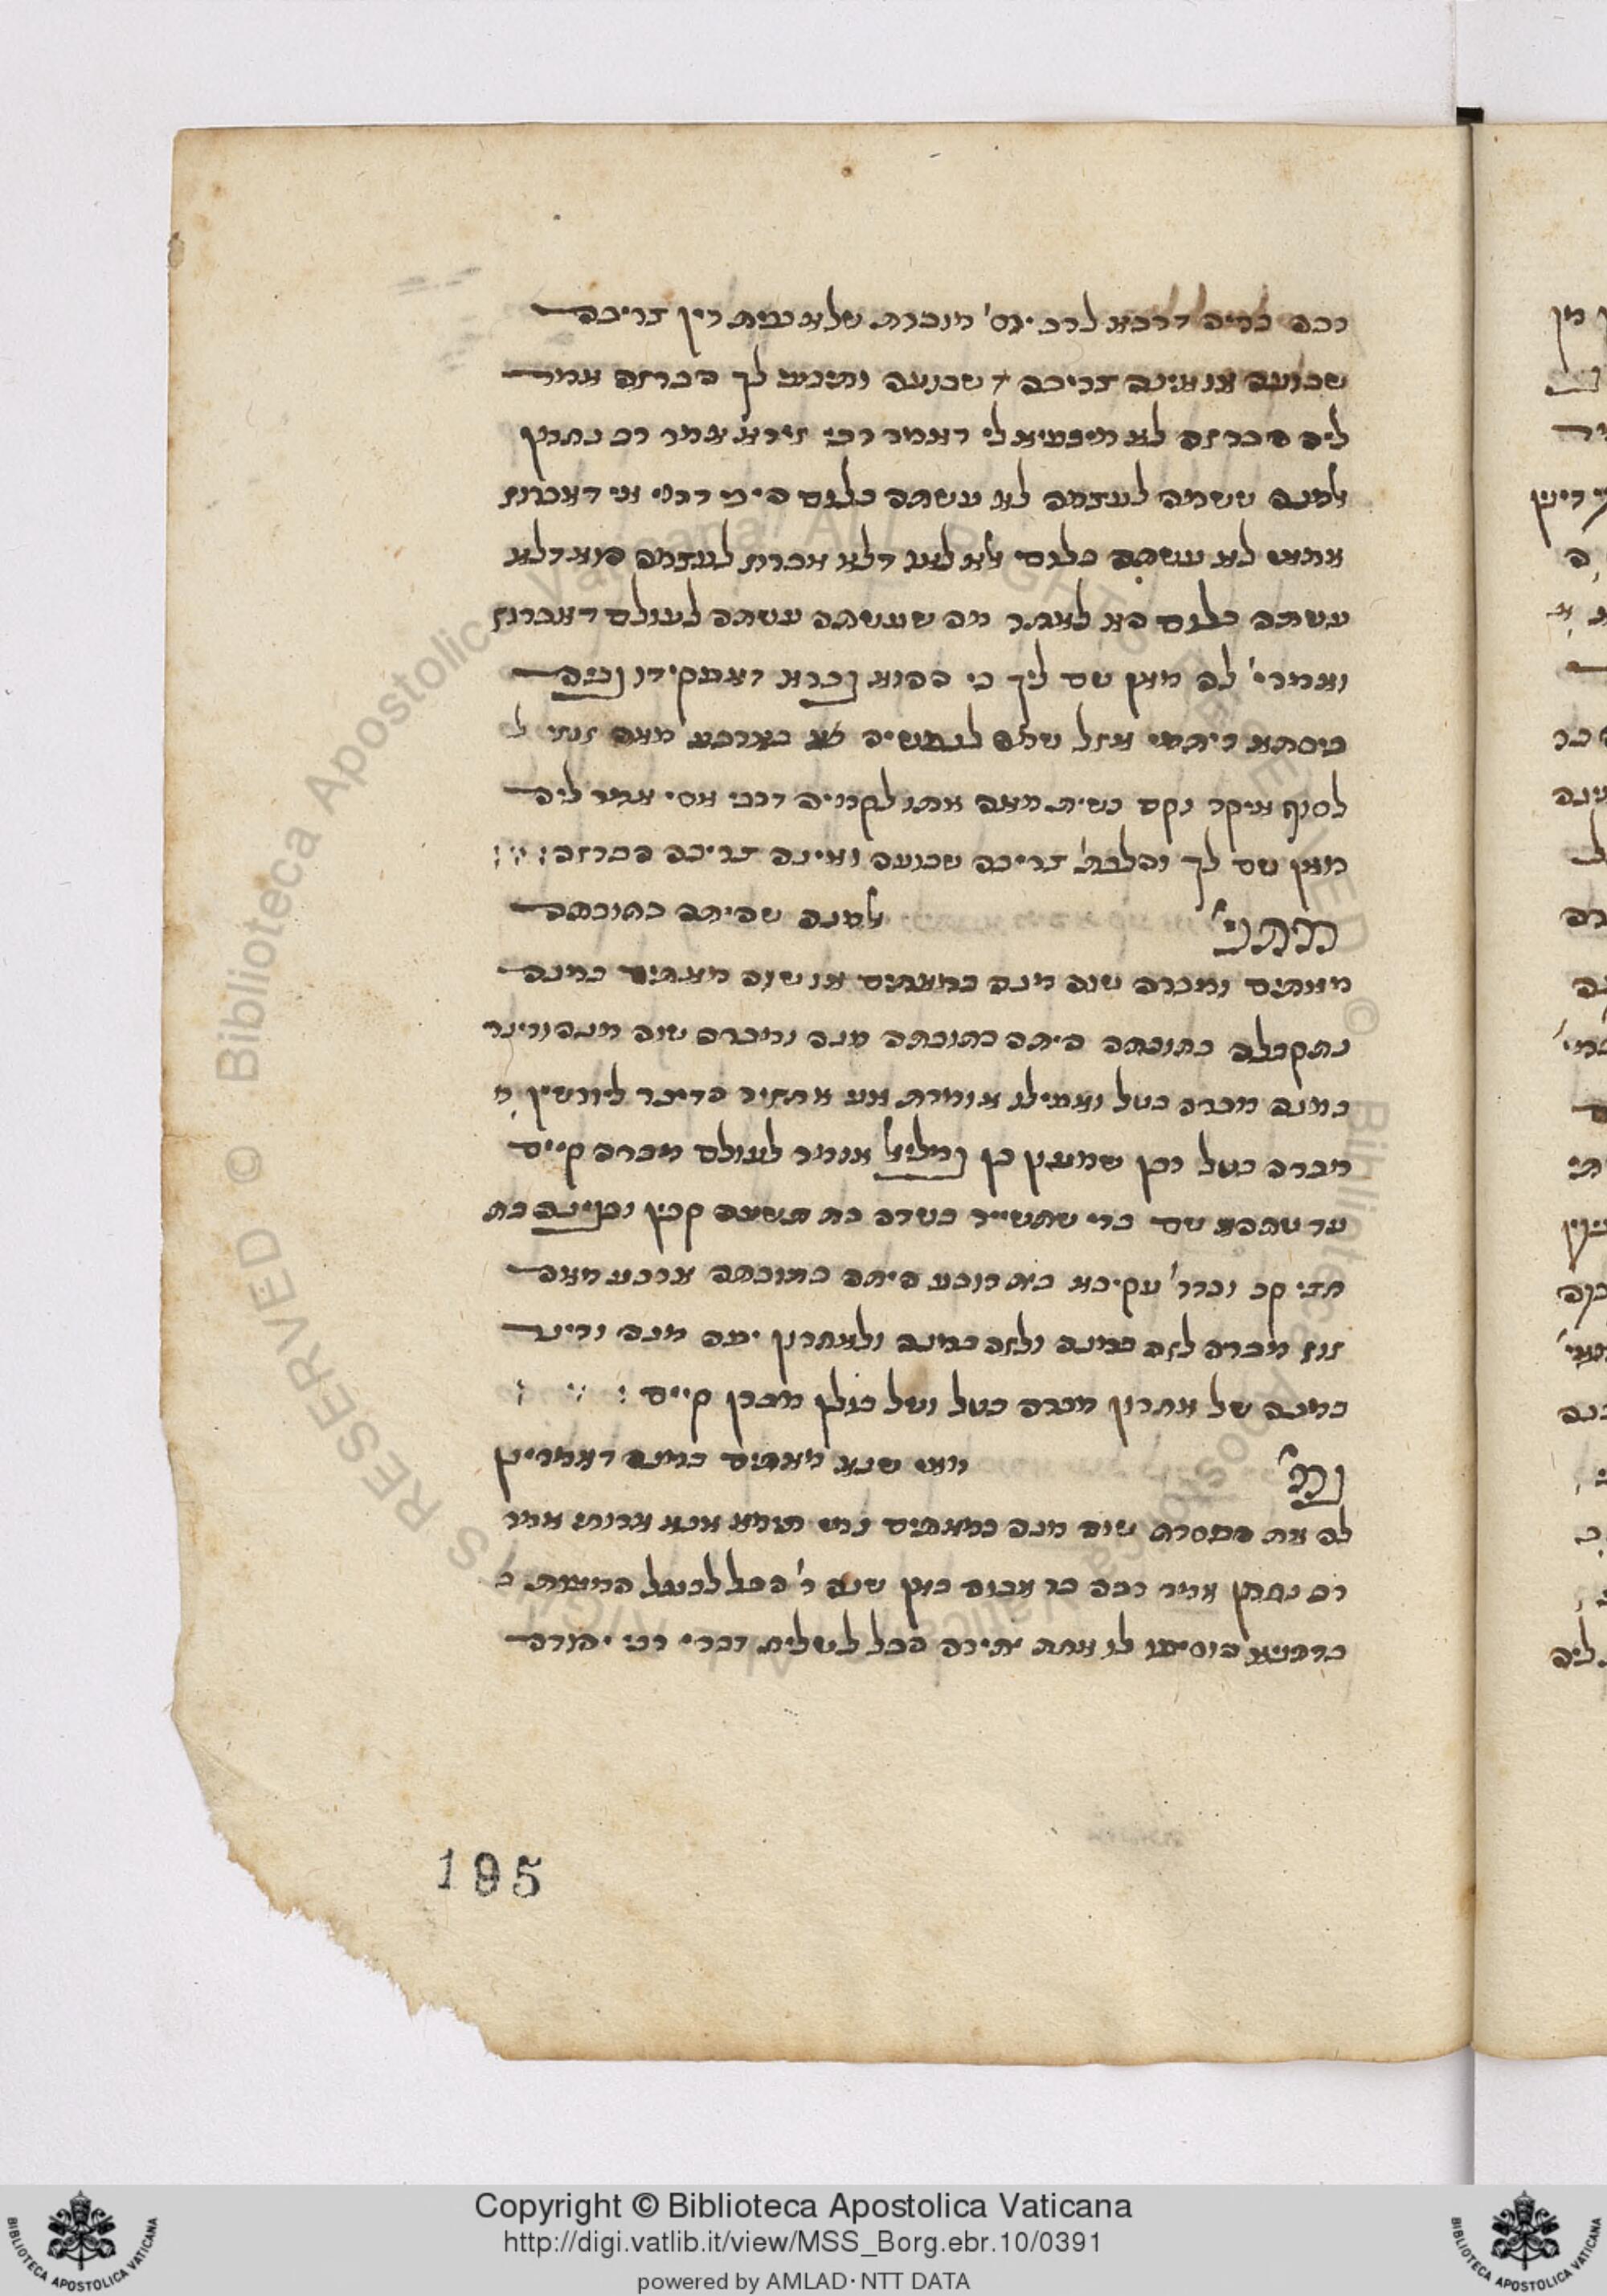 רבה בריה דרבא לרב יוס' מוכרת שלא בבית דין צריכה
שבועה או אינה צריכה שבועה ותיבעי לך הכרזה אמר
ליה הכרזה לא מיבעיא לי דאמר רבי זירא אמר רב נחמן
אלמנה ששמה לעצמה לא עשתה כלום היכי דמי אי דאכרוז
אמאי לא עשתה כלום אלא לאו דלא אכרוז לעצמה הוא דלא
עשתה כלום הא לאחר מה שעשתה עשתה לעולם דאכרוז
ואמרי' לה מאן שם ליך כי ההוא גברא דאפקידו גביה
כיסתא דיתמי אזל שמה לנפשיה בארבע מאה זוזי ל
לסוף אייקר וקם בשית מאה אתו לקמיה דרבי אסי אמר ליה
מאן שם לך והלכת' צריכה שבועה ואינה צריכה הכרזה:
מתני' אלמנה שהיתה כתובתה
מאתים ומכרה שוה מנה במאתים או שוה מאתים במנה
נתקבלה כתובתה היתה כתובתה מנה ומכרה שוה מנה ודינר
במנה מכרה בטל ואפילו אומרת אני אחזיר הדינר ליורשין מ
מכרה בטל רבן שמעון בן גמליאל אומר לעולם מכרה קיים
עד שתהא שם כדי שתשייר בשדה בת תשעה קבין ובגינה בת
חצי קב וכדר' עקיבא בית רובע היתה כתובתה ארבע מאה
זוז מכרה לזה במנה ולזה במנה ולאחרון יפה מנה ודינר
במנה של אחרון מכרה בטל ושל כולן מכרן קיים :
גמ' מאי שנא מאתים במנה דאמרינן
לה את הפסדת שוה מנה במאתים נמי תימא אנא ארווח אמר
רב נחמן אמר רבה בר אבוה כאן שנה ר' הכל לבעל המעות כ
כדתניא הוסיפו לו אחת יתירה הכל לשליח דברי רבי יהודה
195
Copyright © Biblioteca Apostolica Vaticana
http://digi.vatlib.it/view/MSS_Borg.ebr.10/0391
powered by AMLAD · NTT DATA